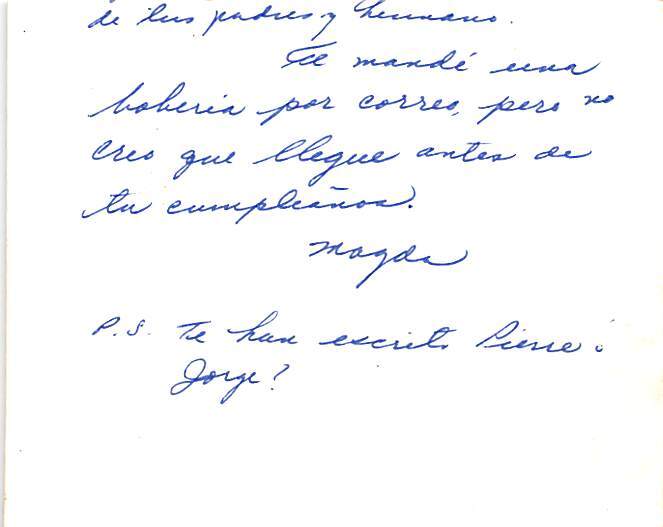 de tus padres y hermano.
Te mandé una
boberia por correo, pero no
creo que llegue antes de
tu cumpleaños.
Magda
P.S. Te han escrito Pierre ó
Jorge?